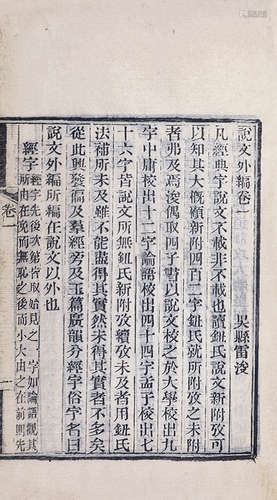 說文外編卷一
吳縣雷浚
凡經典字說文不載非不載也讀鈕氏說文新附可
以知其大槪顧新附四百二字鈕氏就所附攷之未附
者弗及焉浚偶取四子書以說文校之於大學校出九
字中庸校出十二字論語校出四十四字孟子校出七
十六字皆說文所無鈕氏新附攷續攷未及者用鈕氏
法補所未及雖不能盡得其實然未得其實者不多矣
從此興發徧及羣經旁及玉篇廣韻分經字俗字名曰
說文外編所編在說文以外也
經字
經字先後次第皆取始見之字如論語觀其
所由在免而無恥之後而小大由之在前則先
卷一
一